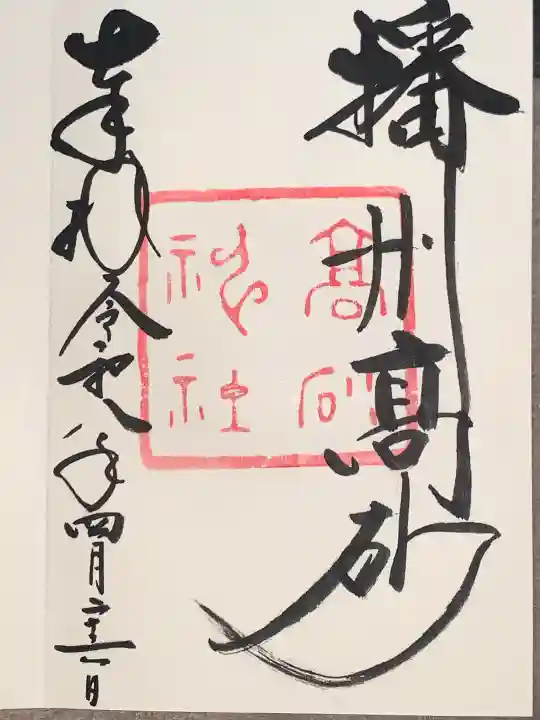 播州高砂
高砂
神社
奉拝 令和八年四月二十六日